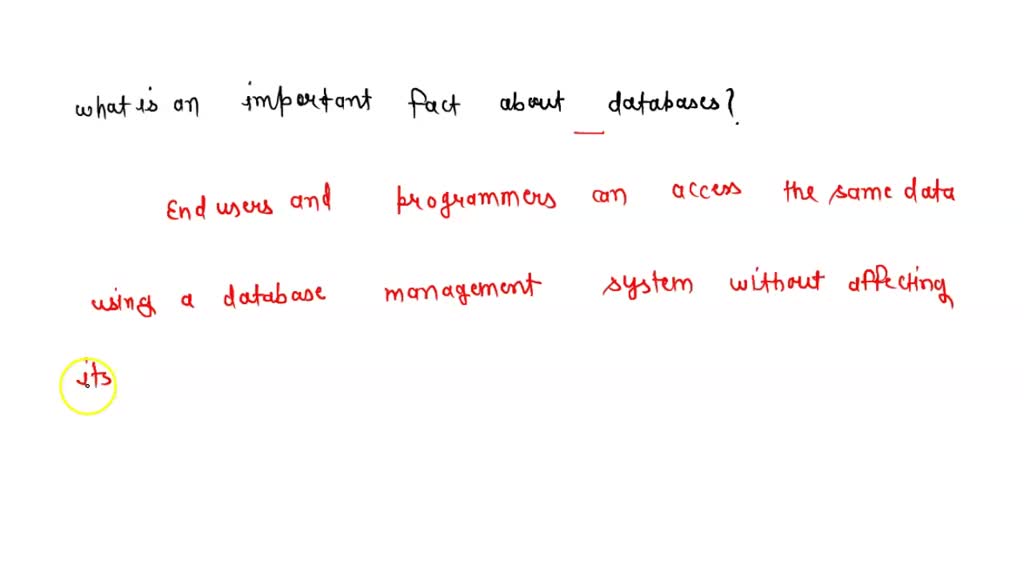 what is an important fact about databases?
End users and programmers can access the same data
using a database management system without affecting
its